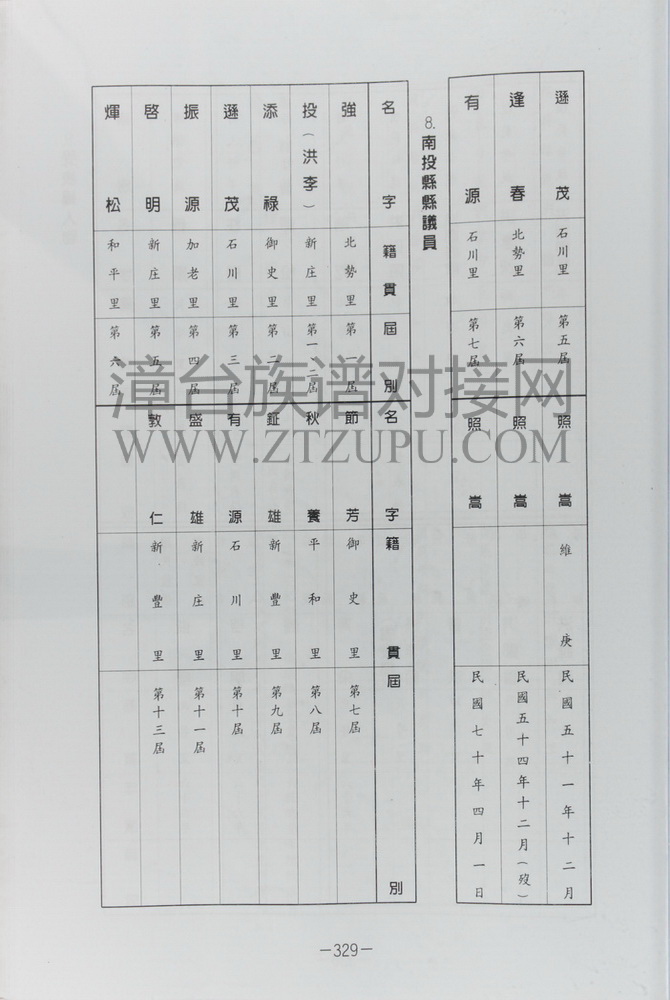 遜茂 石川里 第五屆 照嵩 維庚 民國五十一年十二月
逢春 北勢里 第六屆 照嵩 民國五十四年十二月(歿)
有源 石川里 第七屆 照嵩 民國七十年四月一日
8.南投縣縣議員
名字 籍貫 屆別 名字 籍貫 屆別
強 北勢里 第一屆 節芳 御史里 第七屆
投(洪李) 新庄里 第一二屆 秋養 平和里 第八屆
添祿 御史里 第二屆 鉦雄 新豐里 第九屆
遜茂 石川里 第三屆 有源 石川里 第十屆
振源 加老里 第四屆 盛雄 新庄里 第十一屆
啓明 新庄里 第五屆 敦仁 新豐里 第十三屆
煇松 和平里 第六屆
漳台族谱对接网
WWW.ZTZUPU.COM
—329—